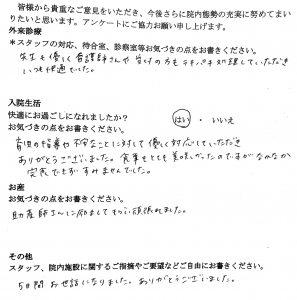 皆様から貴重なご意見をいただき、今後さらに院内態勢の充実に努めてまい
りたいと思います。アンケートにご協力お願い申し上げます。
外来診療
*スタッフの対応、待合室、診察室等お気づきの点をお書きください。
先生も優しく看護師さんや受付の方もテキパキ処理していただき
いつも快適でした。
入院生活
快適にお過ごしになれましたか? はい ・ いいえ
お気づきの点をお書きください。
育児の指導や不安なことに対して優しく対応していただき
ありがとうございました。食事もとても美味しかったのですがなかなか
完食できずすみませんでした。
お産
お気づきの点をお書きください。
助産師さんに励ましてもらい頑張れました。
その他
スタッフ、院内施設に関するご指摘やご要望などご自由にお書きください。
5日間お世話になりました。ありがとうございました。